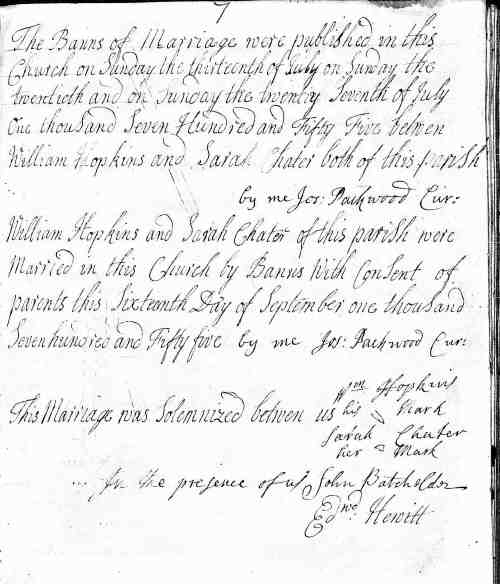 7
The Banns of Marriage were published in this
Church on Sunday the thirteenth of July on Sunday the
twentieth and on Sunday the twenty Seventh of July
One thousand Seven Hundred and Fifty Five betwen
William Hopkins and Sarah Chater both of this parish
by me Jos: Packwood Cur:
William Hopkins and Sarah Chater of this parish were
Married in this Church by Banns With Consent of
parents this Sixteenth Day of September one thousand
Seven hundred and Fifty five by me Jos: Packwood Cur:
Wm Hopkins
This Marriage was Solemnized betwen us his Mark
Sarah Chater
her Mark
In the presence of us John Batcheldor
Edwd. Hewitt